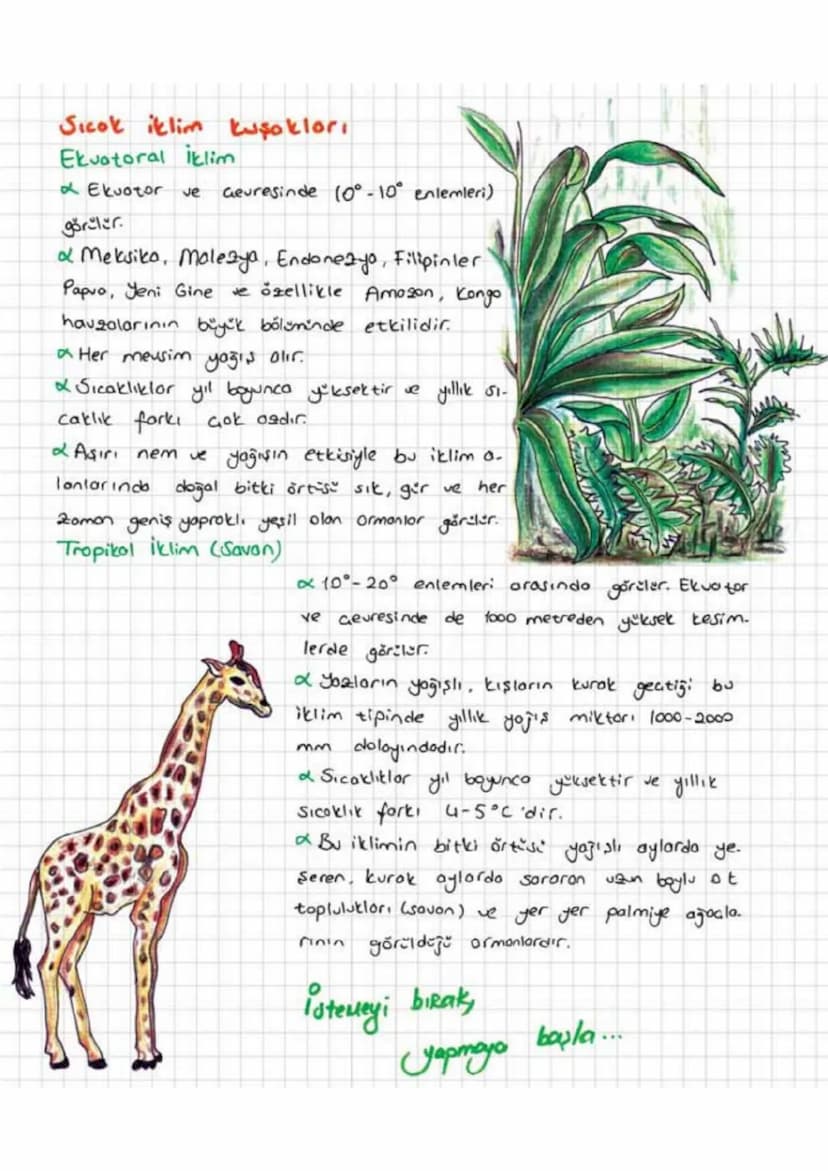 Sıcak iklim kuşakları
Ekvatoral İklim
α Ekvator ve çevresinde (0°-10° enlemleri)
görülür.
α Meksika, Malezya, Endonezya, Filipinler
Papua, Yeni Gine ve özellikle Amazon, Kongo
havzalarının büyük bölümünde etkilidir.
α Her mevsim yağış alır.
α Sıcaklıklar yıl boyunca yüksektir ve yıllık sı-
caklık farkı çok azdır.
α Aşırı nem ve yağışın etkisiyle bu iklim a-
lanlarında doğal bitki örtüsü sık, gür ve her
zaman geniş yapraklı yeşil olan ormanlar görülür.
Tropikal İklim (Savan)
α 10°-20° enlemleri arasında görülür. Ekvator
ve çevresinde de 1000 metreden yüksek kesim-
lerde görülür.
α Yazların yağışlı, kışların kurak geçtiği bu
iklim tipinde yıllık yağış miktarı 1000-2000
mm dolayındadır.
α Sıcaklıklar yıl boyunca yüksektir ve yıllık
sıcaklık farkı 4-5°C'dir.
α Bu iklimin bitki örtüsü yağışlı aylarda ye-
şeren, kurak aylarda sararan uzun boylu ot
toplulukları (savan) ve yer yer palmiye ağaçla-
rının görüldüğü ormanlardır.
İstemeyi bırak,
yapmaya başla...